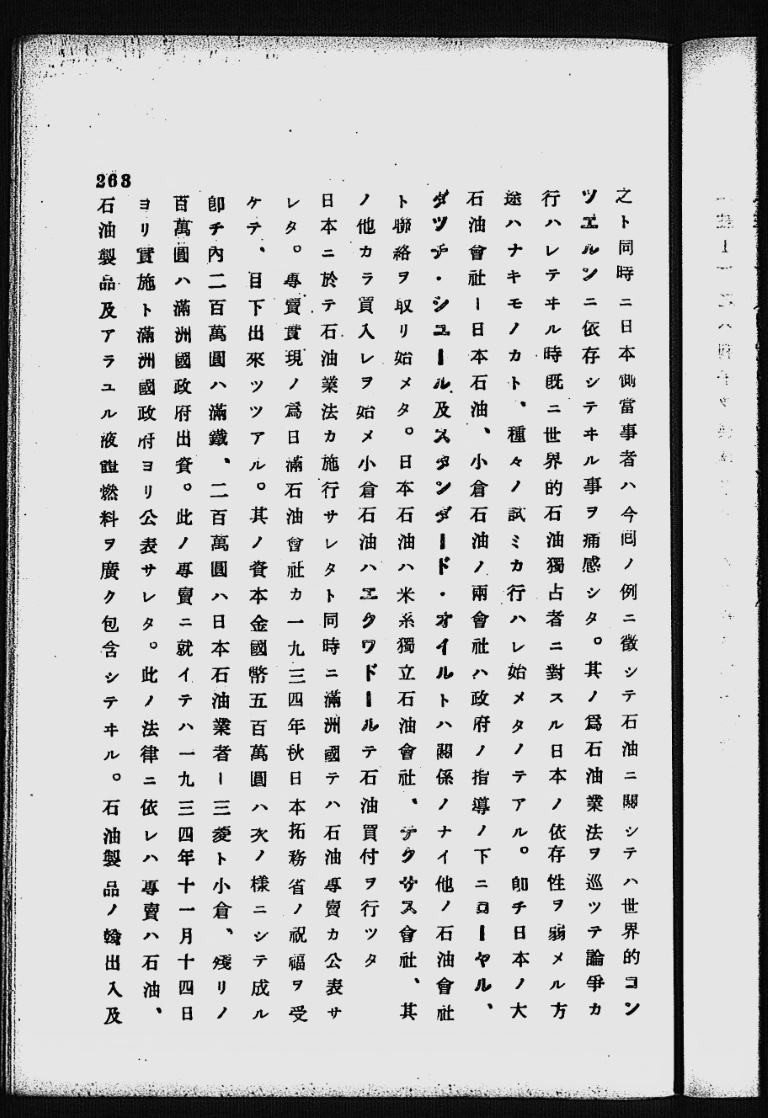 之ト同時ニ日本側當事者ハ今囘ノ例ニ徴シテ石油ニ關シテハ世界的コン
ツエルンニ依存シテヰル事ヲ痛感シタ。其ノ爲石油業法ヲ巡ツテ論爭カ
行ハレテヰル時既ニ世界的石油獨占者ニ對スル日本ノ依存性ヲ弱メル方
途ハナキモノカト、種々ノ試ミカ行ハレ始メタノテアル。卽チ日本ノ大
石油會社ー日本石油、小倉石油ノ兩會社ハ政府ノ指導ノ下ニローヤル、
ダツチ・シユール及スタンダード・オイルトハ關係ノナイ他ノ石油會社
ト聯絡ヲ取リ始メタ。日本石油ハ米系獨立石油會社、テクサス會社、其
ノ他カラ買入レヲ始メ小倉石油ハエクワドールテ石油買付ヲ行ツタ
日本ニ於テ石油業法カ施行サレタト同時ニ滿洲國テハ石油專賣カ公表サ
レタ。專賣實現ノ爲日滿石油會社カ一九三四年秋日本拓務省ノ祝福ヲ受
ケテ、目下出來ツツアル。其ノ資本金國幣五百萬圓ハ次ノ樣ニシテ成ル
卽チ內二百萬圓ハ滿鐵、二百萬圓ハ日本石油業者ー三菱ト小倉、殘リノ
百萬圓ハ滿洲國政府出資。此ノ專賣ニ就イテハ一九三四年十一月十四日
ヨリ實施ト滿洲國政府ヨリ公表サレタ。此ノ法律ニ依レハ專賣ハ石油、
石油製品及アラユル液體燃料ヲ廣ク包含シテヰル。石油製品ノ輸出入及
263